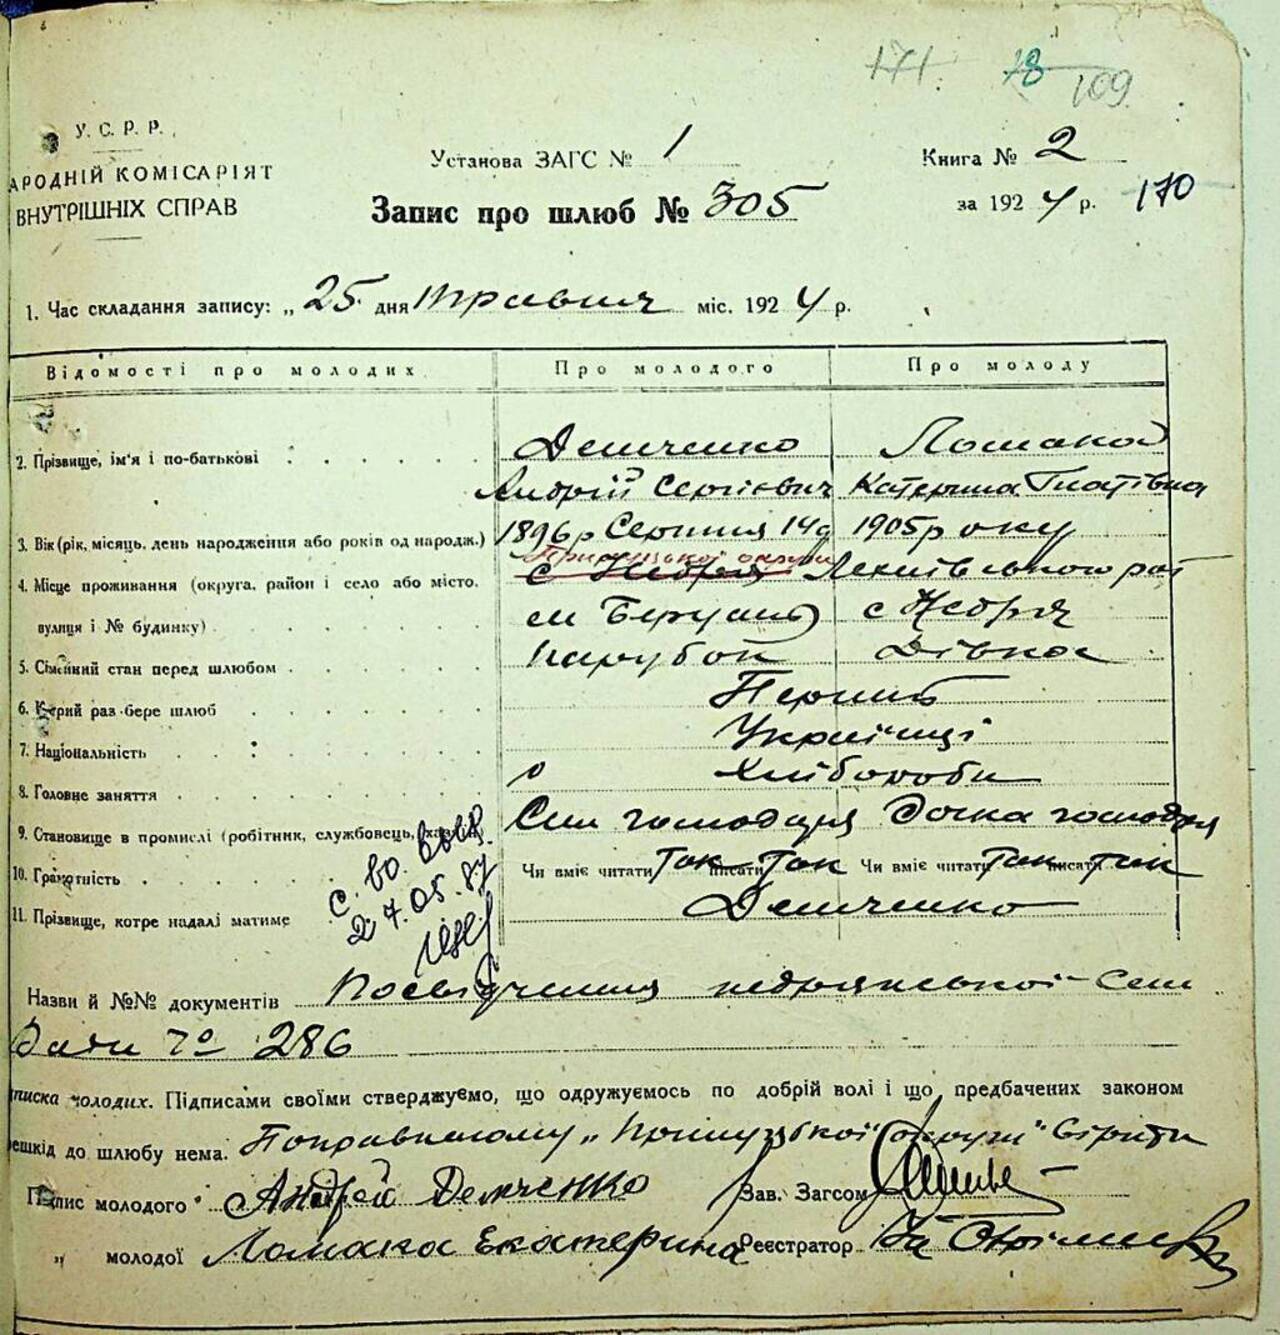 171 78 109
У. С. Р. Р.
АРОДНІЙ КОМІСАРІЯТ
ВНУТРІШНІХ СПРАВ
Установа ЗАГС № 1
Книга № 2
Запис про шлюб № 305
за 1924 р. 170
1. Час складання запису: „ 25 дня Травня міс. 1924 р.
Відомості про молодих Про молодого Про молоду
2. Прізвище, ім'я і по-батькові Демченко Ломакой
Андрій Сергієвич Катерина Гнатівна
3. Вік (рік, місяць, день народження або років од народж.) 1896р Серпня 14д 1905р оку
Прилуцької округи
4. Місце проживання (округа, район і село або місто, с Недря
вулиця і № будинку) с Недря
5. Сімейний стан перед шлюбом Парубок Дівка
6. Котрий раз бере шлюб Перший
7. Національність Українці
8. Головне заняття Хлібороби
9. Становище в промислі (робітник, службовець, хазяїн) Син господаря Дочка господаря
10. Грамотність Чи вміє читати Так писати Так Чи вміє читати Так писати Так
11. Прізвище, котре надалі матиме Демченко
27.05.87
Назви й №№ документів Посвідчення недрянської Сіль
Ради № 286
писка молодих. Підписами своїми стверджуємо, що одружуємось по добрій волі і що, предбачених законом
ешкід до шлюбу нема. Поправленому „Прилуцької округи" вірити
Підпис молодого Андрей Демченко Зав. Загсом
„ молодої Ломака Екатерина Реєстратор